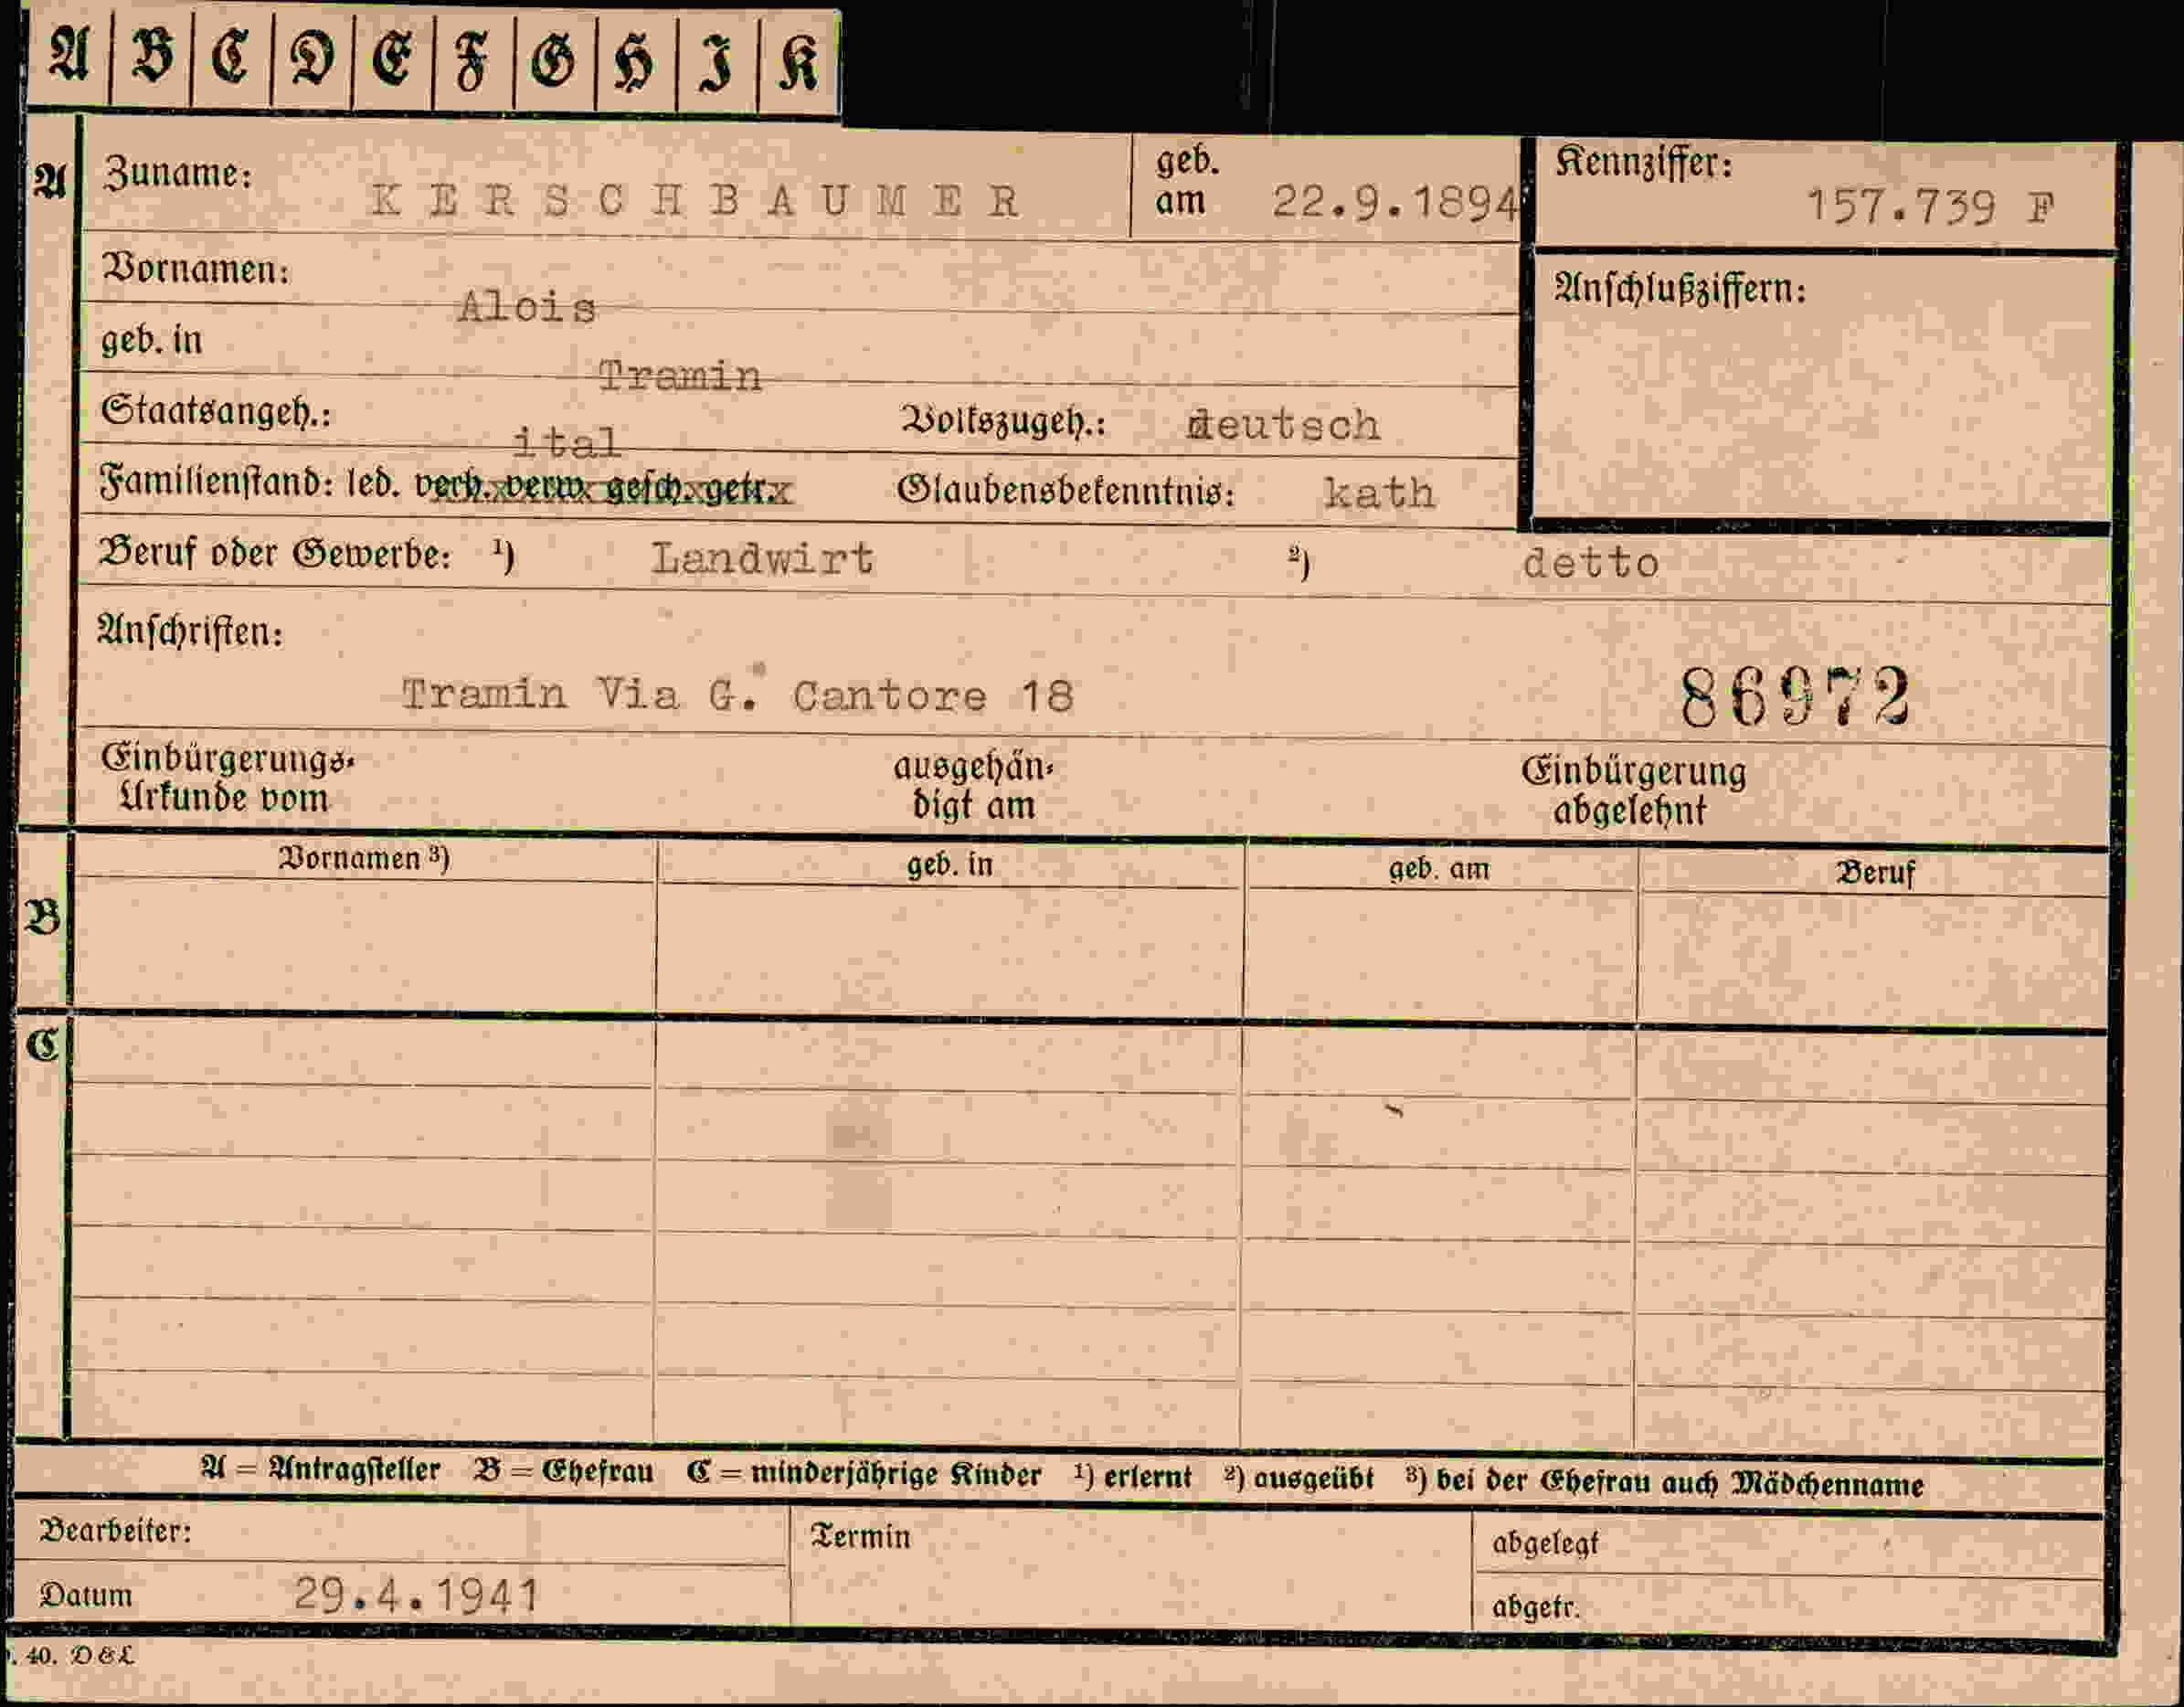 A B C D E F G H I K
A Zuname: KERSCHBAUMER geb. am 22.9.1894 Kennziffer: 157.739 F
Vornamen: Alois Anschlußziffern:
geb. in Tramin
Staatsangeh.: ital Volkszugeh.: deutsch
Familienstand: led. verh. verw. gesch. getr. Glaubensbekenntnis: kath
Beruf oder Gewerbe: ¹) Landwirt ²) detto
Anschriften:
Tramin Via G. Cantore 18 86972
Einbürgerungs-Urkunde vom ausgehändigt am Einbürgerung abgelehnt
Vornamen ³) geb. in geb. am Beruf
B
C
A = Antragsteller B = Ehefrau C = minderjährige Kinder ¹) erlernt ²) ausgeübt ³) bei der Ehefrau auch Mädchenname
Bearbeiter: Termin abgelegt
Datum 29.4.1941 abgetr.
. 40. D & L